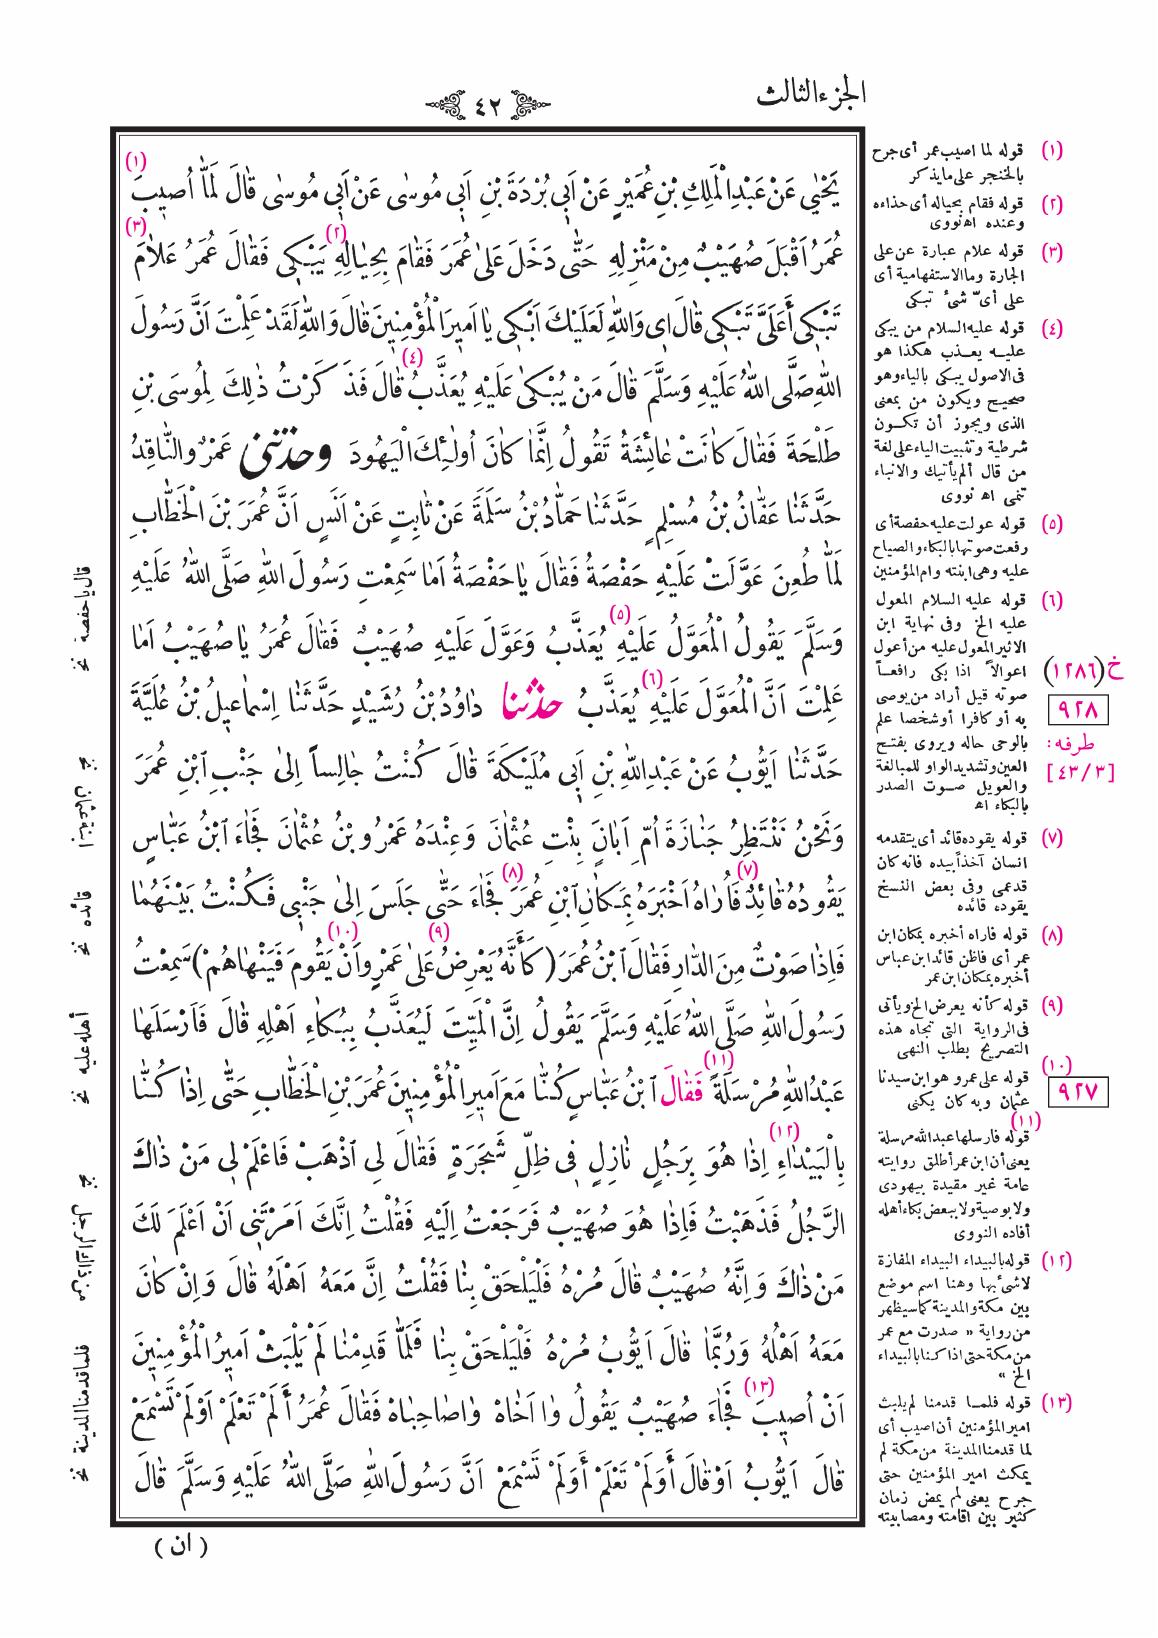 الجزء الثالث
٤٢
(١)
يَحْيٰي عَنْ عَبْدِ الْمَلِكِ بْنِ عُمَيْرٍ عَنْ اَبِي بُرْدَةَ بْنِ اَبِي مُوسٰى عَنْ اَبِي مُوسٰى قٰالَ لَمّٰا اُصيبَ
(٢) (٣)
عُمَرُ اَقْبَلَ صُهَيْبٌ مِنْ مَنْزِلِهِ حَتّٰى دَخَلَ عَلىٰ عُمَرَ فَقٰامَ بِحِيٰالِهِ يَبْكِي فَقٰالَ عُمَرُ عَلاٰمَ
تَبْكِي أَعَلَيَّ تَبْكِي قٰالَ اِي وَاللهِ لَعَلَيْكَ اَبْكِي يٰا اَميرَ الْمُؤْمِنينَ قٰالَ وَاللهِ لَقَدْ عَلِمْتَ اَنَّ رَسُولَ
(٤)
اللهِ صَلَّى اللهُ عَلَيْهِ وَسَلَّمَ قٰالَ مَنْ يُبْكىٰ عَلَيْهِ يُعَذَّبُ قٰالَ فَذَكَرْتُ ذٰلِكَ لِمُوسَى بْنِ
طَلْحَةَ فَقٰالَ كٰانَتْ عٰائِشَةُ تَقُولُ اِنَّمٰا كٰانَ اُولٰئِكَ الْيَهُودَ وحدثني عَمْرٌو النّٰاقِدُ
حَدَّثَنٰا عَفّٰانُ بْنُ مُسْلِمٍ حَدَّثَنٰا حَمّٰادُ بْنُ سَلَمَةَ عَنْ ثٰابِتٍ عَنْ اَنَسٍ اَنَّ عُمَرَ بْنَ الْخَطّٰابِ
لَمّٰا طُعِنَ عَوَّلَتْ عَلَيْهِ حَفْصَةُ فَقٰالَ يٰا حَفْصَةُ اَمٰا سَمِعْتِ رَسُولَ اللهِ صَلَّى اللهُ عَلَيْهِ
(٥)
وَسَلَّمَ يَقُولُ الْمُعَوَّلُ عَلَيْهِ يُعَذَّبُ وَعَوَّلَ عَلَيْهِ صُهَيْبٌ فَقٰالَ عُمَرُ يٰا صُهَيْبُ اَمٰا
(٦)
عَلِمْتَ اَنَّ الْمُعَوَّلَ عَلَيْهِ يُعَذَّبُ حدثنا دٰاوُدُ بْنُ رُشَيْدٍ حَدَّثَنٰا اِسْمٰاعيلُ بْنُ عُلَيَّةَ
حَدَّثَنٰا اَيُّوبُ عَنْ عَبْدِ اللهِ بْنِ اَبِي مُلَيْكَةَ قٰالَ كُنْتُ جٰالِساً اِلىٰ جَنْبِ ابْنِ عُمَرَ
وَنَحْنُ نَنْتَظِرُ جَنٰازَةَ اُمِّ اَبٰانَ بِنْتِ عُثْمٰانَ وَعِنْدَهُ عَمْرُو بْنُ عُثْمٰانَ فَجٰاءَ ابْنُ عَبّٰاسٍ
(٧) (٨)
يَقُودُهُ قٰائِدٌ فَأُرٰاهُ اَخْبَرَهُ بِمَكٰانِ ابْنِ عُمَرَ فَجٰاءَ حَتّٰى جَلَسَ اِلىٰ جَنْبِي فَكُنْتُ بَيْنَهُمٰا
(٩) (١٠)
فَاِذٰا صَوْتٌ مِنَ الدّٰارِ فَقٰالَ ابْنُ عُمَرَ (كَأَنَّهُ يَعْرِضُ عَلىٰ عَمْرٍو اَنْ يَقُومَ فَيَنْهٰاهُمْ) سَمِعْتُ
رَسُولَ اللهِ صَلَّى اللهُ عَلَيْهِ وَسَلَّمَ يَقُولُ اِنَّ الْمَيِّتَ لَيُعَذَّبُ بِبُكٰاءِ اَهْلِهِ قٰالَ فَاَرْسَلَهٰا
(١١)
عَبْدُ اللهِ مُرْسَلَةً فَقٰالَ ابْنُ عَبّٰاسٍ كُنّٰا مَعَ اَميرِ الْمُؤْمِنينَ عُمَرَ بْنِ الْخَطّٰابِ حَتّٰى اِذٰا كُنّٰا
(١٢)
بِالْبَيْدٰاءِ اِذٰا هُوَ بِرَجُلٍ نٰازِلٍ فِي ظِلِّ شَجَرَةٍ فَقٰالَ لِي اذْهَبْ فَاعْلَمْ لِي مَنْ ذٰاكَ
الرَّجُلُ فَذَهَبْتُ فَاِذٰا هُوَ صُهَيْبٌ فَرَجَعْتُ اِلَيْهِ فَقُلْتُ اِنَّكَ اَمَرْتَنِي اَنْ اَعْلَمَ لَكَ
مَنْ ذٰاكَ وَاِنَّهُ صُهَيْبٌ قٰالَ مُرْهُ فَلْيَلْحَقْ بِنٰا فَقُلْتُ اِنَّ مَعَهُ اَهْلَهُ قٰالَ وَاِنْ كٰانَ
مَعَهُ اَهْلُهُ وَرُبَّمٰا قٰالَ اَيُّوبُ مُرْهُ فَلْيَلْحَقْ بِنٰا فَلَمّٰا قَدِمْنٰا لَمْ يَلْبَثْ اَميرُ الْمُؤْمِنينَ
(١٣)
اَنْ اُصيبَ فَجٰاءَ صُهَيْبٌ يَقُولُ وٰا اَخٰاهْ وٰا صٰاحِبٰاهْ فَقٰالَ عُمَرُ أَلَمْ تَعْلَمْ اَوَلَمْ تَسْمَعْ
قٰالَ اَيُّوبُ اَوْ قٰالَ أَوَلَمْ تَعْلَمْ أَوَلَمْ تَسْمَعْ اَنَّ رَسُولَ اللهِ صَلَّى اللهُ عَلَيْهِ وَسَلَّمَ قٰالَ
( ان )
(١) قوله لما اصيب عمر أى جرح
بالخنجر على ما يذكر
(٢) قوله فقام بحياله أى حذاءه
وعنده اه نووى
(٣) قوله علام عبارة عن على
الجارة وما الاستفهامية أى
على أىّ شىء تبكى
(٤) قوله عليه السلام من يبكى
عليه يعذب هكذا هو
فى الاصول يبكى بالياء وهو
صحيح ويكون من بمعنى
الذى ويجوز أن تكون
شرطية وتثبيت الياء على لغة
من قال ألم يأتيك والانباء
تنمى اه نووى
(٥) قوله عولت عليه حفصة أى
رفعت صوتها بالبكاء والصياح
عليه وهى ابنته وام المؤمنين
(٦) قوله عليه السلام المعول
عليه الخ وفى نهاية ابن
الاثير المعول عليه من أعول
اعوالاً اذا بكى رافعاً
صوته قيل أراد من يوصى
به أو كافرا أو شخصا علم
بالوحى حاله ويروى بفتح
العين وتشديد الواو للمبالغة
والعويل صوت الصدر
بالبكاء اه
(٧) قوله يقوده قائد أى يتقدمه
انسان آخذاً بيده فانه كان
قدعمى وفى بعض النسخ
يقوده قائده
(٨) قوله فاراه أخبره بمكان ابن
عمر أى فاظن قائد ابن عباس
أخبره بمكان ابن عمر
(٩) قوله كأنه يعرض الخ ويأتى
فى الرواية التى تجاه هذه
التصريح بطلب النهى
(١٠)
قوله على عمرو هو ابن سيدنا
عثمان وبه كان يكنى
(١١)
قوله فارسلها عبدالله مرسلة
يعنى أن ابن عمر أطلق روايته
عامة غير مقيدة بيهودى
ولا بوصية ولا ببعض بكاء أهله
أفاده النووى
(١٢) قوله بالبيداء البيداء المفازة
لا شىء بها وهنا اسم موضع
بين مكة والمدينة كما سيظهر
من رواية « صدرت مع عمر
من مكة حتى اذا كنا بالبيداء
الخ »
(١٣) قوله فلما قدمنا لم يلبث
امير المؤمنين أن اصيب أى
لما قدمنا المدينة من مكة لم
يمكث امير المؤمنين حتى
جرح يعنى لم يمض زمان
كثير بين اقامته ومصابيته
خ (١٢٨٦)
٩٢٨
طرفه :
[٤٣/٣]
٩٢٧
قال ياحفصة نخ
ابنة عثمان نخ
قائده نخ
أهله عليه نخ
من ذاك الرجل نخ
فلما قدمنا المدينة نخ